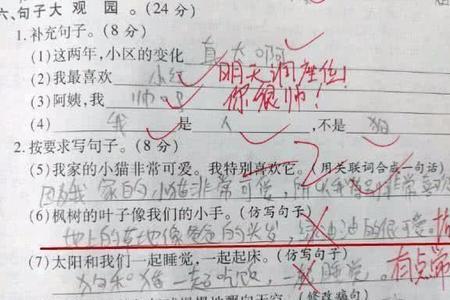 六、句子大观园。(24分)
1.补充句子。(8分)
(1)这两年,小区的变化 真大啊
(2)我最喜欢 小红 明天调座位!
(3)阿姨,我 帅吧 你很帅!
(4) 我 是 人 ,不是 猫
2.按要求写句子。(8分)
(5)我家的小猫非常可爱。我特别喜欢它。(用关联词合成一句话)
因为我家的小猫非常可爱,
(6)枫树的叶子像我们的小手。(仿写句子)
地上的草地像爸爸的头发,绿油油的很可爱。
(7)太阳和我们一起睡觉,一起起床。(仿写句子)
狗和猫一起吃饭 睡觉。 有点常
(修改病句)